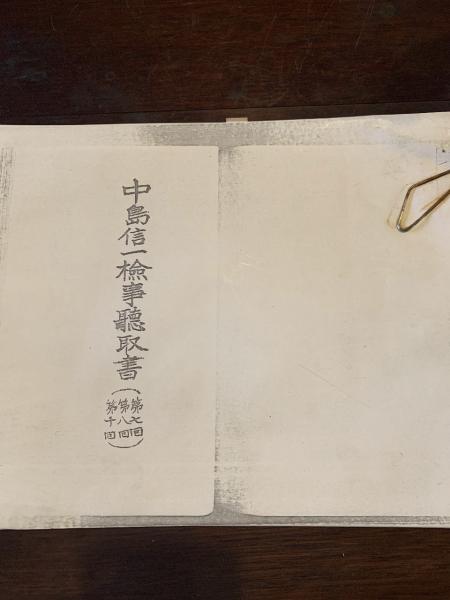 中島信一檢事聽取書
（第七回
第八回
第十回）